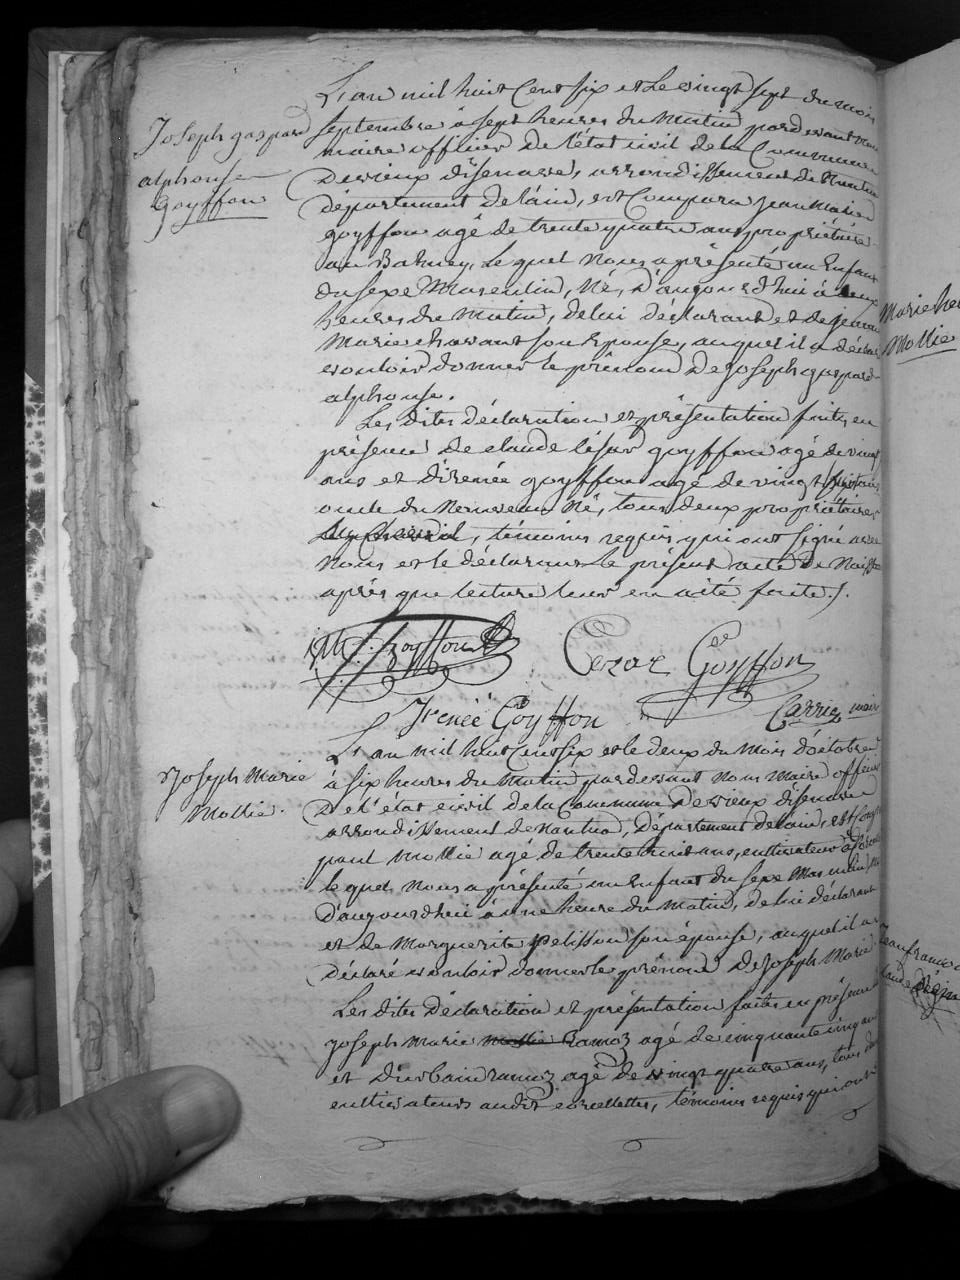 Joseph gaspard
alphonse
Goyffon
L'an mil huit Cent six et Le vingt sept du mois
septembre à sept heures du Matin pardevant nous
maire officier De l'état civil de la Commune
De vieux d'isenave, arrondissement de Nantua
département de l'ain, est Comparu jean Marie
goyffon agé de trente quatre ans propriétaire
au Balmey, Lequel Nous a présenté un Enfant
du sexe Masculin, Né, D'aujourd'hui à deux
heures du Matin, de lui Déclarant et de
Marie chavant son Epouse, auquel il a déclaré
vouloir donner le prénom De Joseph gaspard
alphonse.
Les dites déclaration et présentation faites en
présence de claude César goyffon agé de vingt
ans et d'irenée goyffon agé de vingt
oncle du Nouveau Né, tous deux propriétaires
témoins requis qui ont signé avec
Nous et le déclarant le présent acte De Naiss
après que lecture leur en a été faite /.
J M Goyffon
Cezar Goyffon
Irenée Goyffon
Carrier maire
Joseph Marie
Mollie.
L'an mil huit Cent six et le deux du Mois d'octobre
à six heures du Matin pardevant nous Maire officier
De l'état civil de la Commune De vieux d'isenave
arrondissement de nantua, Département de l'ain, est Comparu
paul Mollie agé de trente huit ans, cultivateur
lequel Nous a présenté un Enfant du sexe Masculin, Né
D'aujourd'hui à une heure du Matin, de lui déclarant
et de Marguerite Pelisson son épouse, auquel il a
Déclaré vouloir donner le prénom De Joseph Marie.
Les dites Déclaration et présentation faites en présence de
Joseph Marie Mollie Ramoz agé de cinquante cinq ans
et d'urbain ramoz agé De vingt quatre ans, tous deux
cultivateurs audit corcellettes, témoins requis qui ont
Mollie
Jean francois